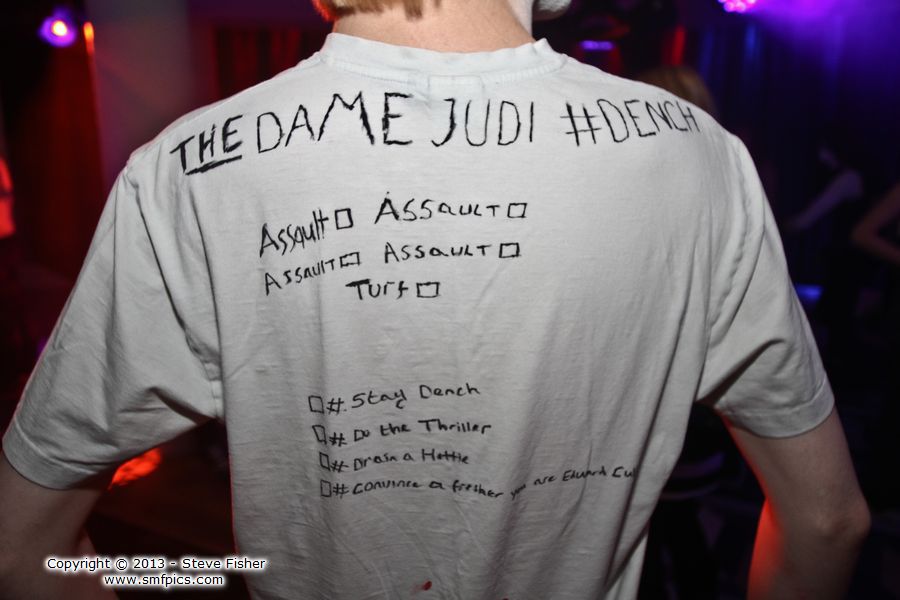 THE DAME JUDI #DENCH
Assault □ Assault □
Assault □ Assault □
Turf □
□ # Stay Dench
□ # Do the Thriller
□ # Drain a Hottie
□ # Convince a fresher you are Edward Cul
Copyright © 2013 - Steve Fisher
www.smfpics.com